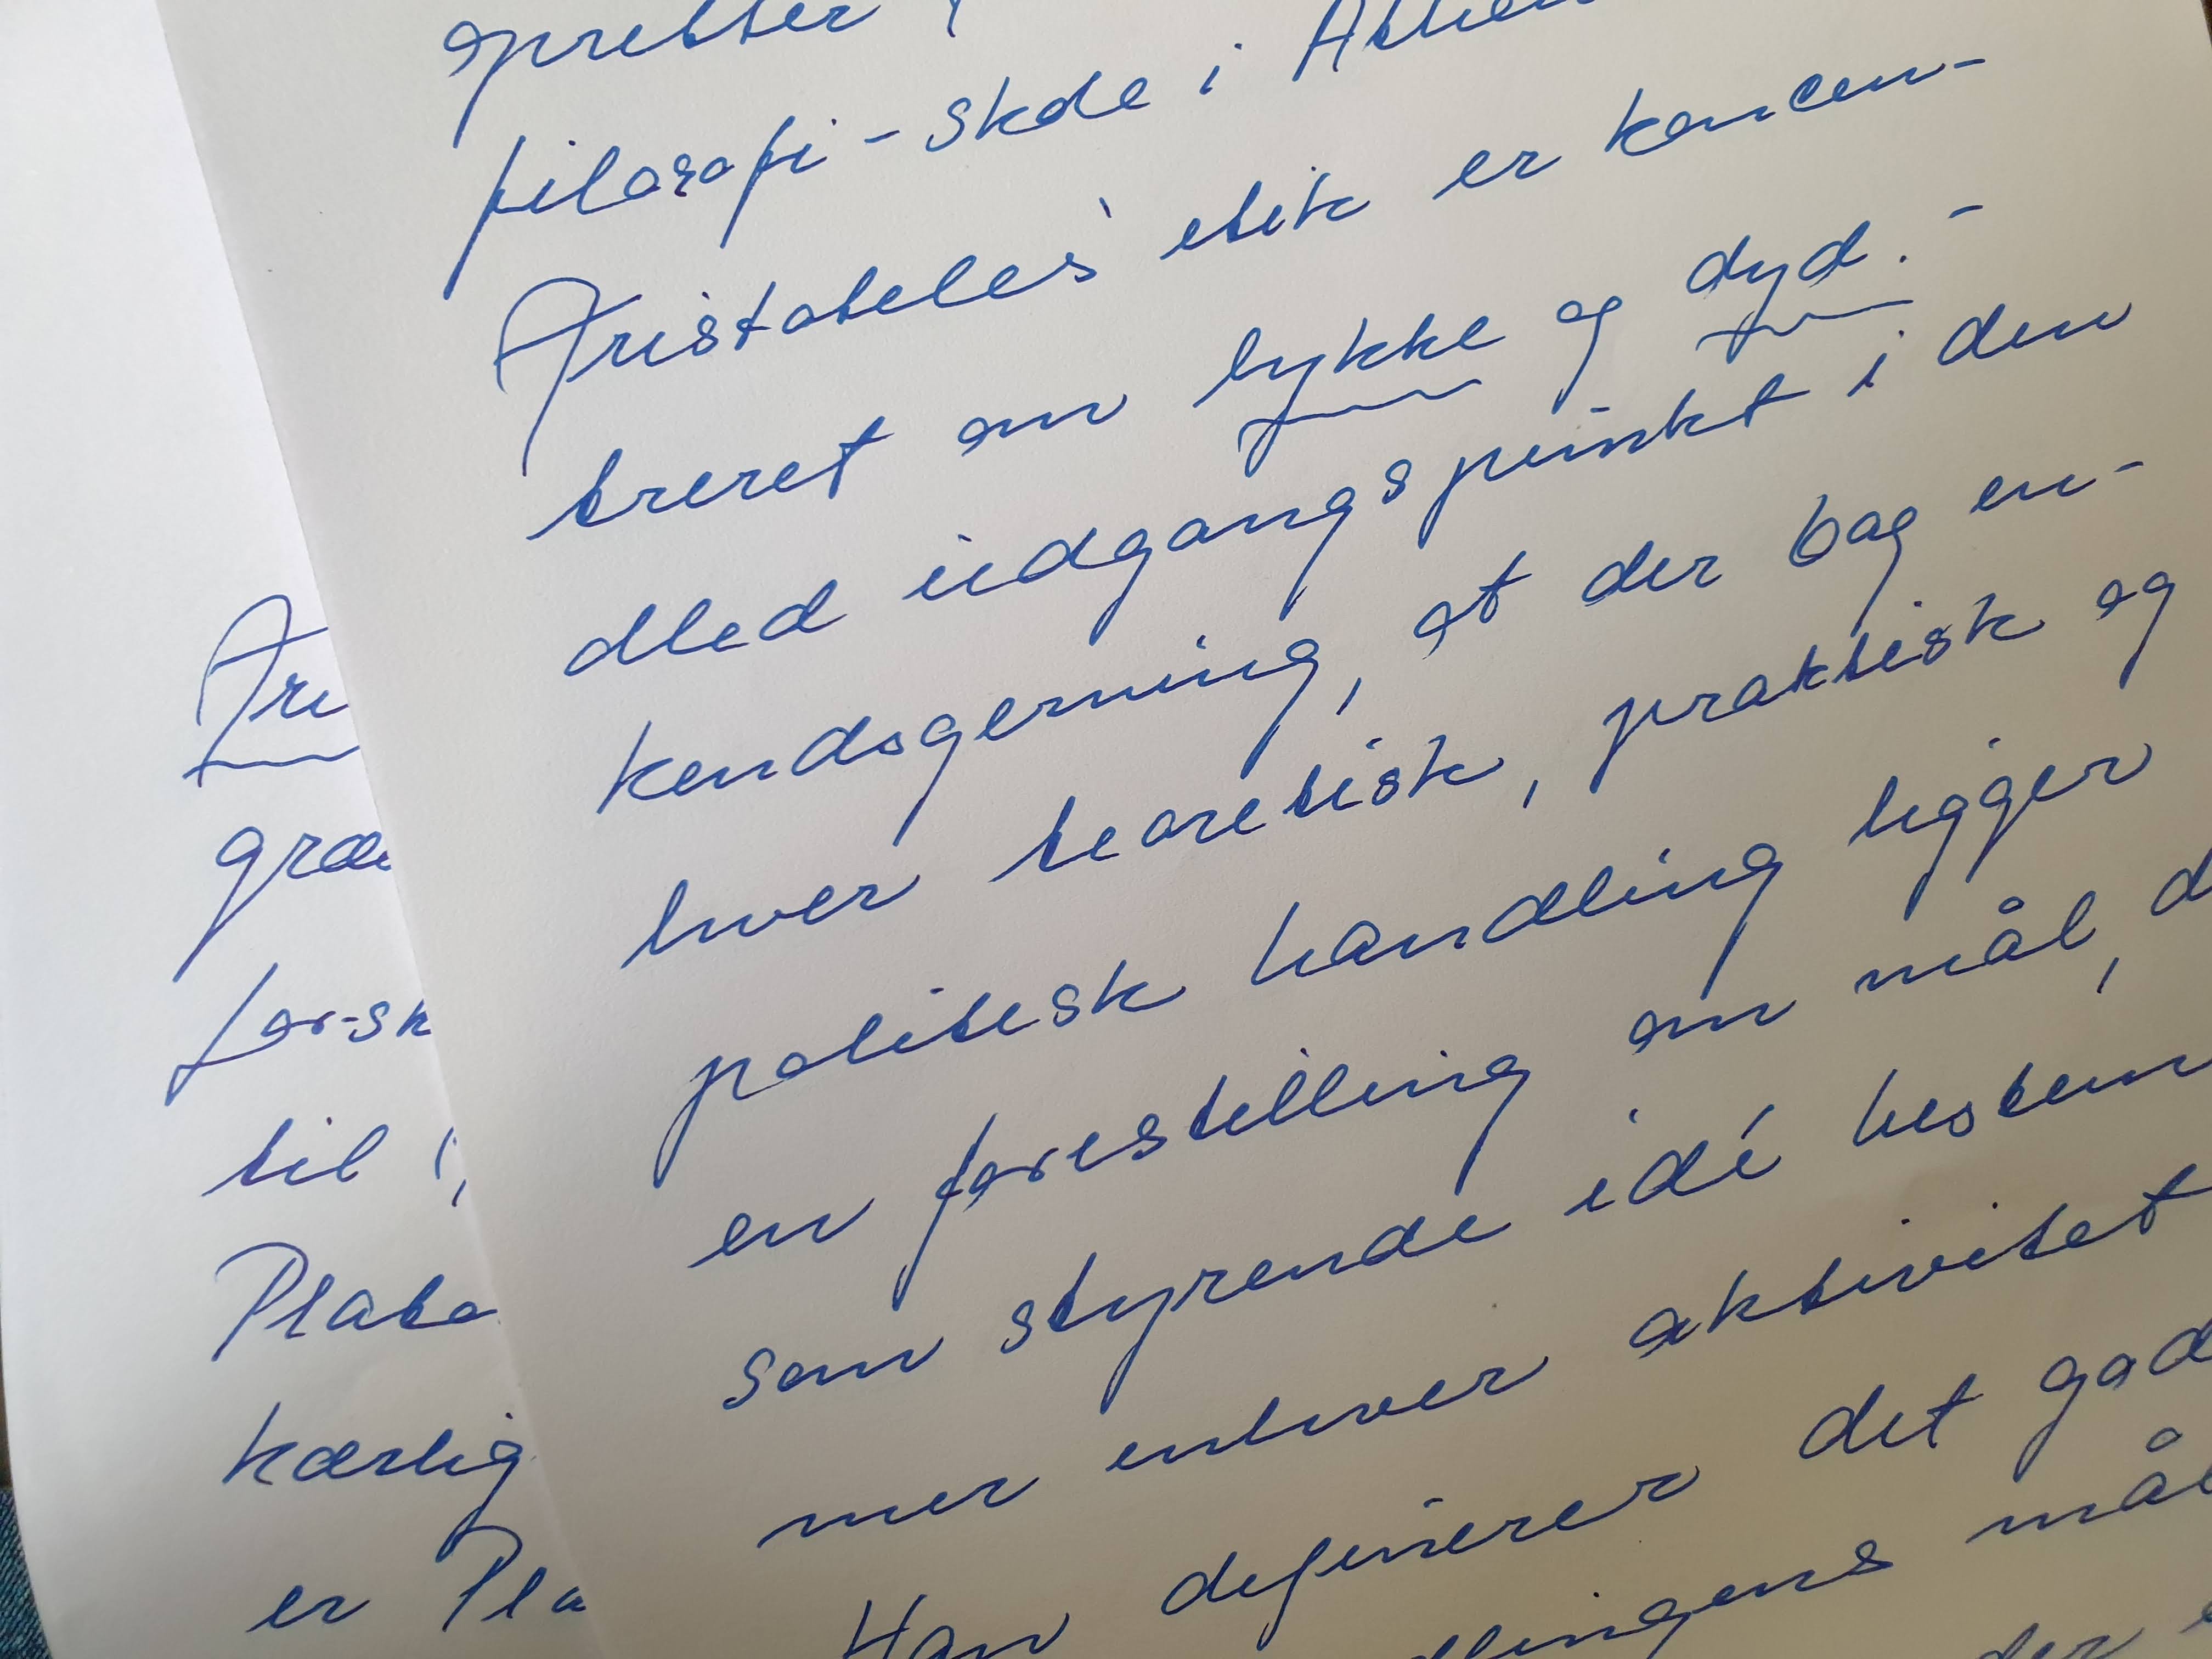 opretter
filosofi-skole i Athen
Aristoteles' etik er koncen-
treret om lykke og dyd. -
dled udgangspunkt i den
kendsgerning, at der bag en-
hver teoretisk, praktisk og
politisk handling ligger
en forestilling om mål, d
som styrende idé bestem
mer enhver aktivitet
Han definerer det god
dlingens mål
der
Ari
græ
for-sk
til i,
Plato
kærlig
er Pla